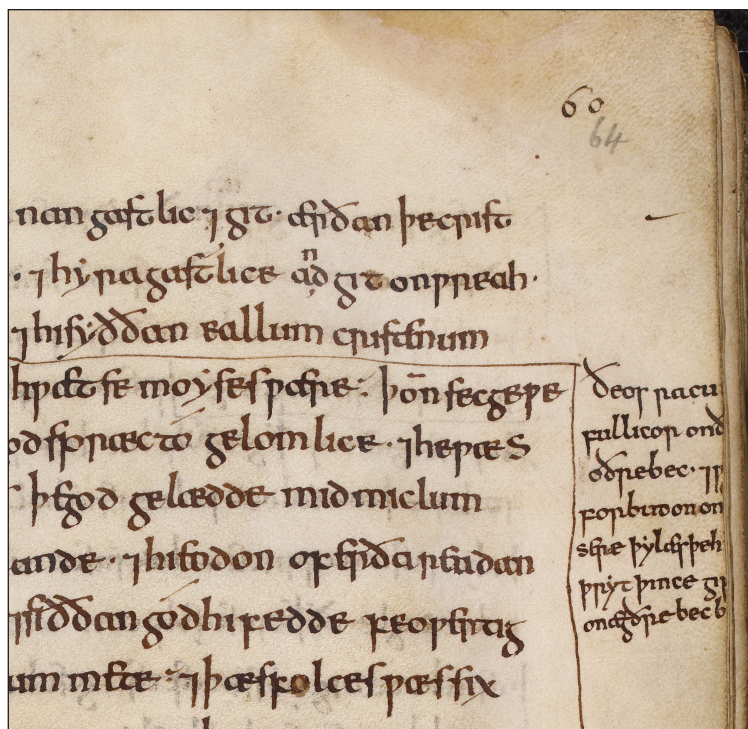 60
64
nan gastlic ⁊ git. ærðan þe crist
. ⁊ hyra gastlice andgit onwreah.
⁊ hi syððan eallum cristenum
hwæt se moyses wære. þoñ secge we
od spræc to gelomlice. ⁊ he wæs
þe god gelædde mid miclum
ande. ⁊ hi eodon ofer ða readan
siððan god hi fedde feowertig
um mete: ⁊ þæs folces wæs six
Ðeos racu
fullicor on ð
oðre bec. ⁊ w
forbudon on
sere þy læs þe h
þryt þince gi
on ægðre bec b